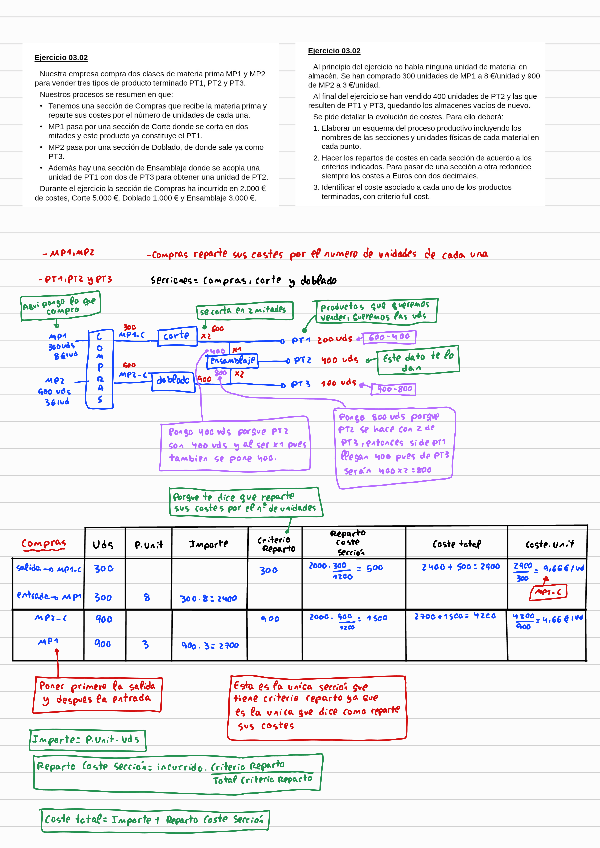 Ejercicio 03.02
Nuestra empresa compra dos clases de materia prima MP1 y MP2
para vender tres tipos de producto terminado PT1, PT2 y PT3.
Nuestros procesos se resumen en que:
• Tenemos una sección de Compras que recibe la materia prima y
reparte sus costes por el número de unidades de cada una.
• MP1 pasa por una sección de Corte donde se corta en dos
mitades y este producto ya constituye el PT1.
• MP2 pasa por una sección de Doblado, de donde sale ya como
PT3.
• Además hay una sección de Ensamblaje donde se acopla una
unidad de PT1 con dos de PT3 para obtener una unidad de PT2.
Durante el ejercicio la sección de Compras ha incurrido en 2.000 €
de costes, Corte 5.000 €, Doblado 1.000 € y Ensamblaje 3.000 €.
Ejercicio 03.02
Al principio del ejercicio no había ninguna unidad de material en
almacén. Se han comprado 300 unidades de MP1 a 8 €/unidad y 900
de MP2 a 3 €/unidad.
Al final del ejercicio se han vendido 400 unidades de PT2 y las que
resulten de PT1 y PT3, quedando los almacenes vacíos de nuevo.
Se pide detallar la evolución de costes. Para ello deberá:
1. Elaborar un esquema del proceso productivo incluyendo los
nombres de las secciones y unidades físicas de cada material en
cada punto.
2. Hacer los repartos de costes en cada sección de acuerdo a los
criterios indicados. Para pasar de una sección a otra redondee
siempre los costes a Euros con dos decimales.
3. Identificar el coste asociado a cada uno de los productos
terminados, con criterio full cost.
- MP1, MP2
- Compras reparte sus costes por el numero de unidades de cada una
- PT1, PT2 y PT3
Secciones= compras, corte y doblado
Aqui pongo lo que
compro
se corta en 2 mitades
productos que queremos
vender, queremos las uds
MP1
300uds
8€/ud
COMPRAS
300
MP1-C
corte
600
x2
PT1 200 uds
600-400
400
x1
ensamblaje
PT2 400 uds
Este dato te lo
dan
800
x2
MP2
900 uds
3€/ud
MP2-C
doblado
900
PT3 100 uds
900-800
Pongo 400 uds porque PT2
son 400 uds y al ser x1 pues
tambien se pone 400.
Pongo 800 uds porque
PT2 se hace con 2 de
PT3, entonces si de PT1
llegan 400 pues de PT3
serán 400x2=800
Porque te dice que reparte
sus costes por el nº de unidades
Compras
Uds
P.unit
Importe
Criterio
Reparto
Reparto
Coste
Sección
Coste total
Coste.Unit
salida → MP1-C 300 300 2000·300/1200 = 500 2400 + 500 = 2900 2900/300 = 9,66€/ud
MP1-C
entrada → MP1 300 8 300·8=2400
MP2-C 900 900 2000·900/1200 = 1500 2700+1500=4200 4200/900 = 4,66€/ud
MP1 900 3 900·3=2700
Poner primero la salida
y despues la entrada
Esta es la unica sección que
tiene criterio reparto ya que
es la unica que dice como reparte
sus costes
Importe= P.Unit·Uds
Reparto Coste Sección= incurrido· Criterio Reparto
Total Criterio Reparto
Coste total= Importe + Reparto Coste Sección